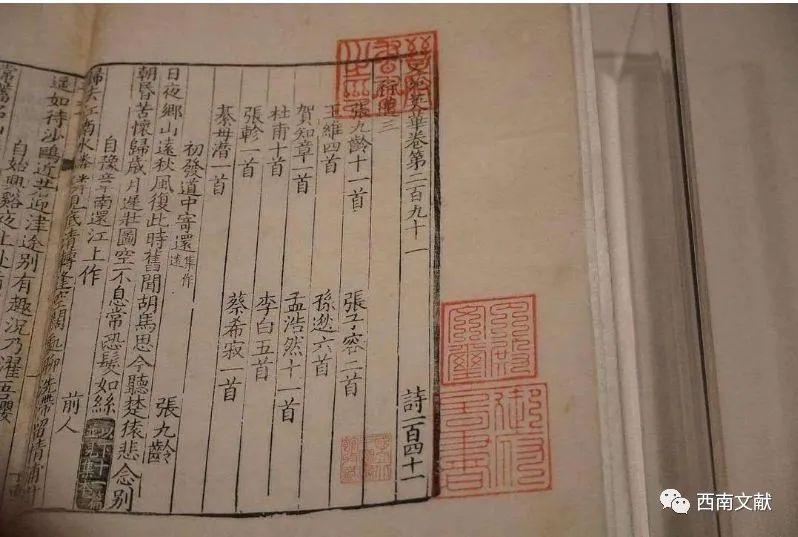 苑英華卷第二百九十一 詩一百四十一
行邁三
張九齡十一首 張子容二首
王維四首 孫逖六首
賀知章一首 孟浩然十一首
杜甫十首 李白五首
張軫一首 蔡希寂一首
綦毋潛一首
初發道中寄遠集作 張九齡
日夜鄉山遠秋風復此時舊聞胡馬思今聽楚猿悲念別
朝昏苦懷歸歲月遲壯圖空不息常恐髮如絲
自豫章南還江上作 前人
歸去江南水
遥如待沙鷗近若迎津途別有趣況乃濯吾纓
自始興谿夜上赴
御府
西南文献